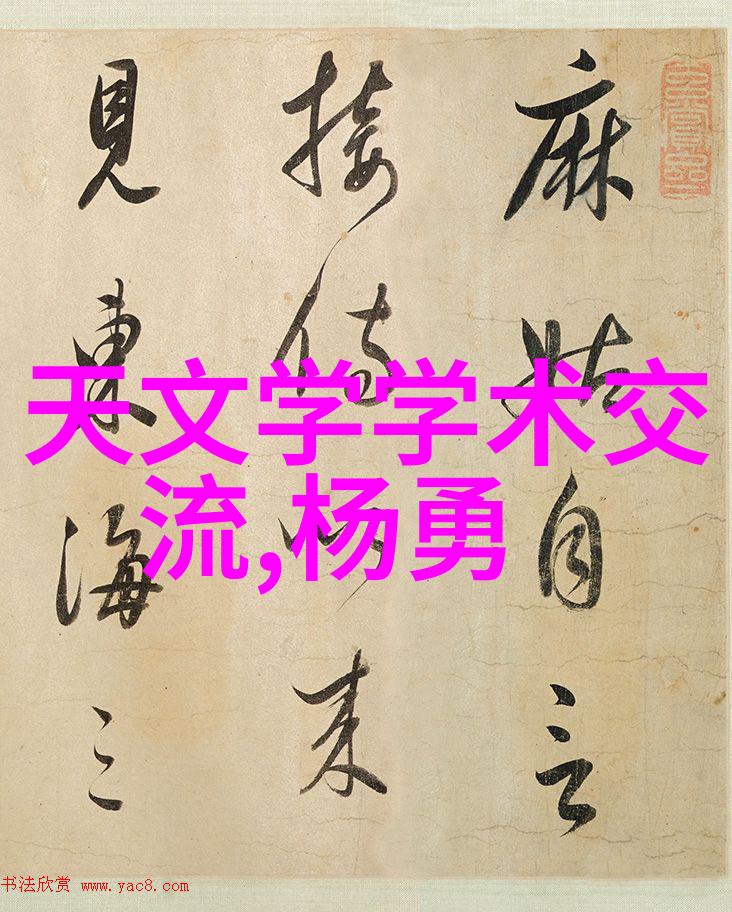 麻姑自言
接侍以来
見東海三
天文学学术交
流,杨勇
书法欣赏 www.yac8.com